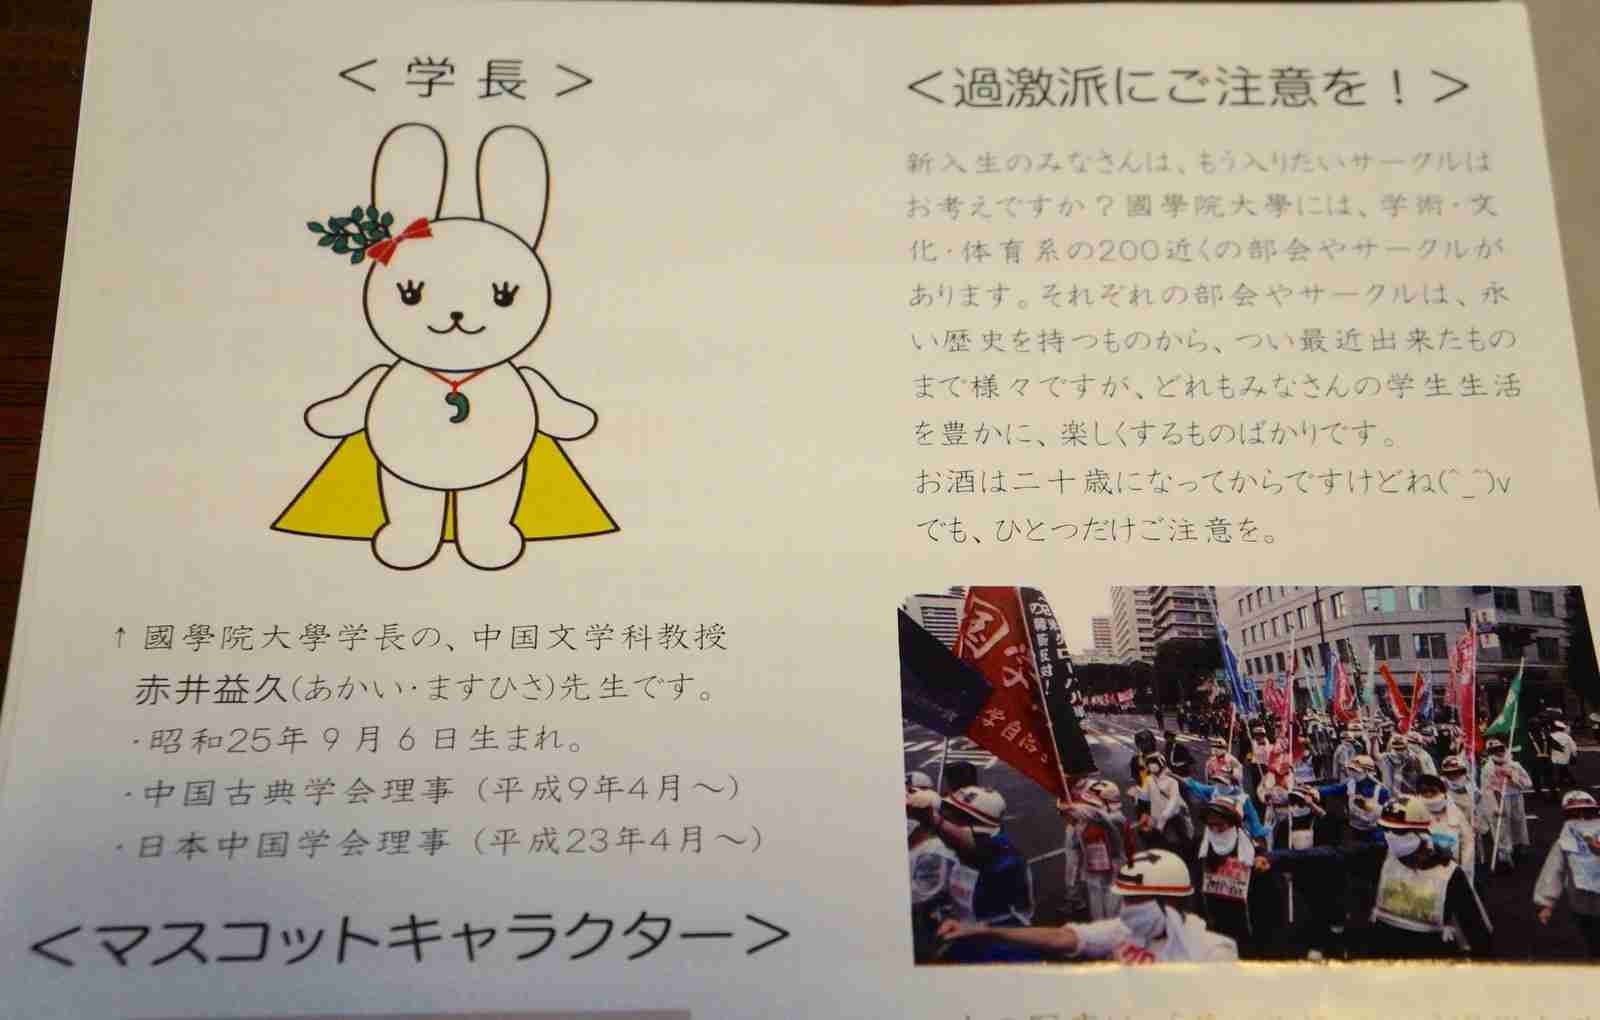 ＜学長＞
↑國學院大學学長の、中国文学科教授
赤井益久(あかい・ますひさ)先生です。
・昭和25年9月6日生まれ。
・中国古典学会理事（平成9年4月～）
・日本中国学会理事（平成23年4月～）
＜マスコットキャラクター＞
＜過激派にご注意を！＞
新入生のみなさんは、もう入りたいサークルは
お考えですか？國學院大學には、学術・文
化・体育系の200近くの部会やサークルが
あります。それぞれの部会やサークルは、永
い歴史を持つものから、つい最近出来たもの
まで様々ですが、どれもみなさんの学生生活
を豊かに、楽しくするものばかりです。
お酒は二十歳になってからですけどね(^_^)v
でも、ひとつだけご注意を。